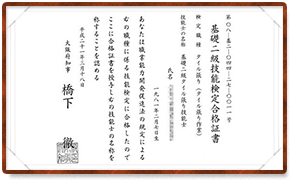 第〇八-基二-〇四一-二七-〇〇一一号
基礎二級技能検定合格証書
検定職種 タイル張り(タイル張り作業)
技能士の名称 基礎二級タイル張り技能士
氏名
一九八一年二月七日生
あなたは職業能力開発促進法の規定による
右の職種に係る技能検定に合格したので
ここに合格証書を授与し右の技能士の名称を
称することを認める
平成二十一年三月十八日
大阪府知事 橋下 徹